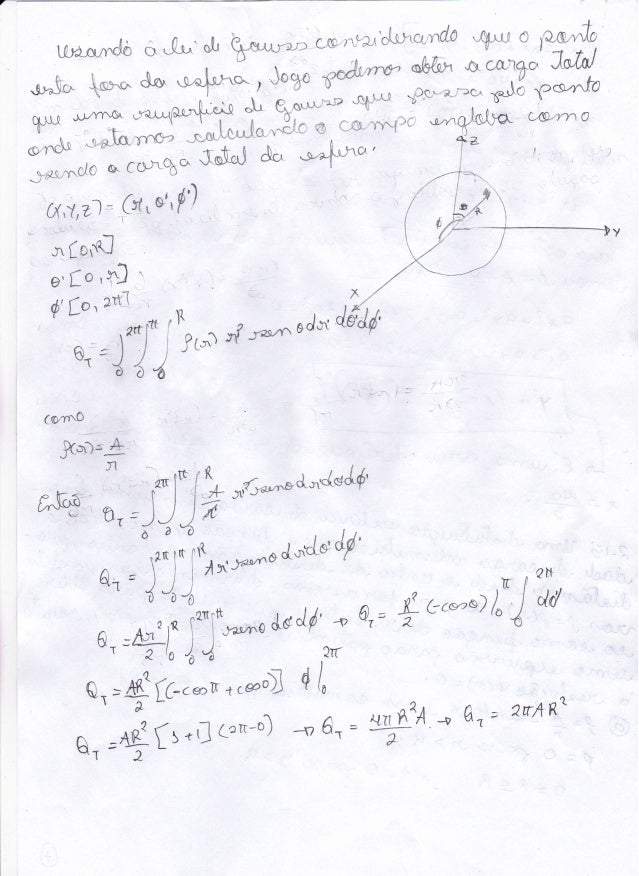 Usando a lei de Gauss considerando que o ponto
esta fora da esfera, logo podemos obter a carga Total
que uma superfície de Gauss que passa pelo ponto
onde estamos calculando o campo engloba como
sendo a carga total da esfera.
Z
θ
R
Y
X
(X,Y,Z) = (r, θ', φ')
r [0,R]
θ' [0, π]
φ' [0, 2π]
Q_T = ∫₀^2π ∫₀^π ∫₀^R ρ(r) r² sen θ dr' dθ' dφ'
como
ρ(r) = A/r
Então Q_T = ∫₀^2π ∫₀^π ∫₀^R A/r r² sen θ dr dθ dφ'
Q_T = ∫₀^2π ∫₀^π ∫₀^R A r' sen θ dr dθ' dφ'
Q_T = Ar²/2 |₀^R ∫₀^2π ∫₀^π sen θ dθ' dφ' → Q_T = R²/2 (-cos θ) |₀^π ∫₀^2π dφ'
Q_T = AR²/2 [(-cos π + cos 0)] φ |₀^2π
Q_T = AR²/2 [1+1] (2π-0) → Q_T = 4πR²A/2 → Q_T = 2πAR²